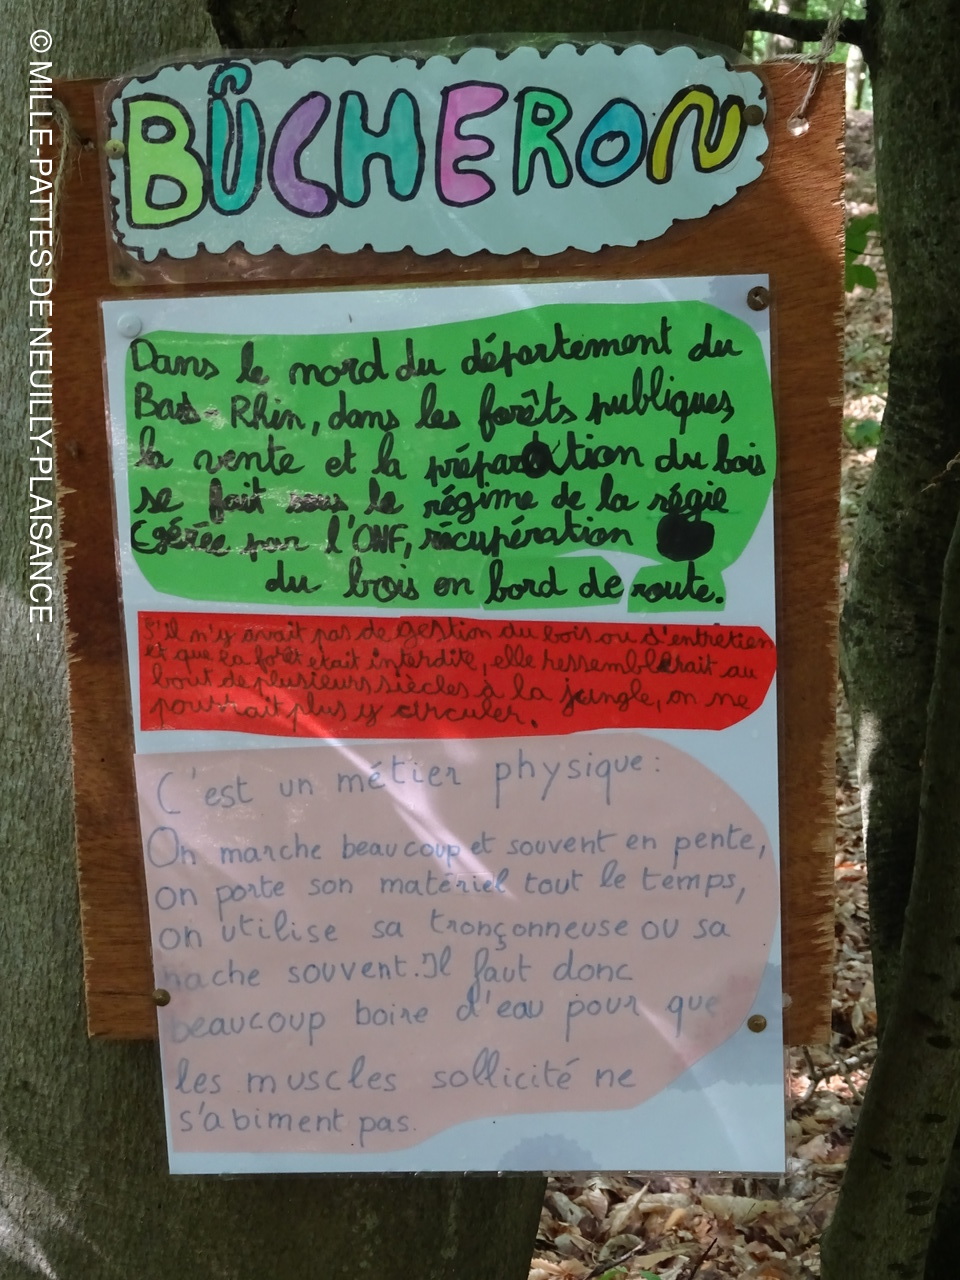 BÛCHERON
Dans le nord du département du
Bas-Rhin, dans les forêts publiques
la vente et la préparation du bois
se fait sous le régime de la régie
Gérée par l'ONF, récupération
du bois en bord de route.
S'il n'y avait pas de gestion du bois ou d'entretien
et que la forêt était interdite, elle ressemblerait au
bout de plusieurs siècles à la jungle, on ne
pourrait plus y circuler.
C'est un métier physique:
On marche beaucoup et souvent en pente,
on porte son matériel tout le temps,
on utilise sa tronçonneuse ou sa
hache souvent. Il faut donc
beaucoup boire d'eau pour que
les muscles sollicité ne
s'abiment pas.
© MILLE-PATTES DE NEUILLY-PLAISANCE -